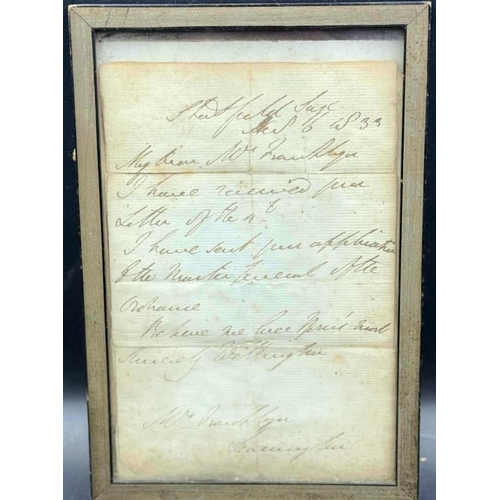 Strathfield Saye
6 1833
My Dear Mrs Franklyn
I have received your
Letter of the 4t
I have sent your application
to the Master General of the
Ordnance
Believe me
Sincerely Wellington
Mrs Franklyn
Leamington